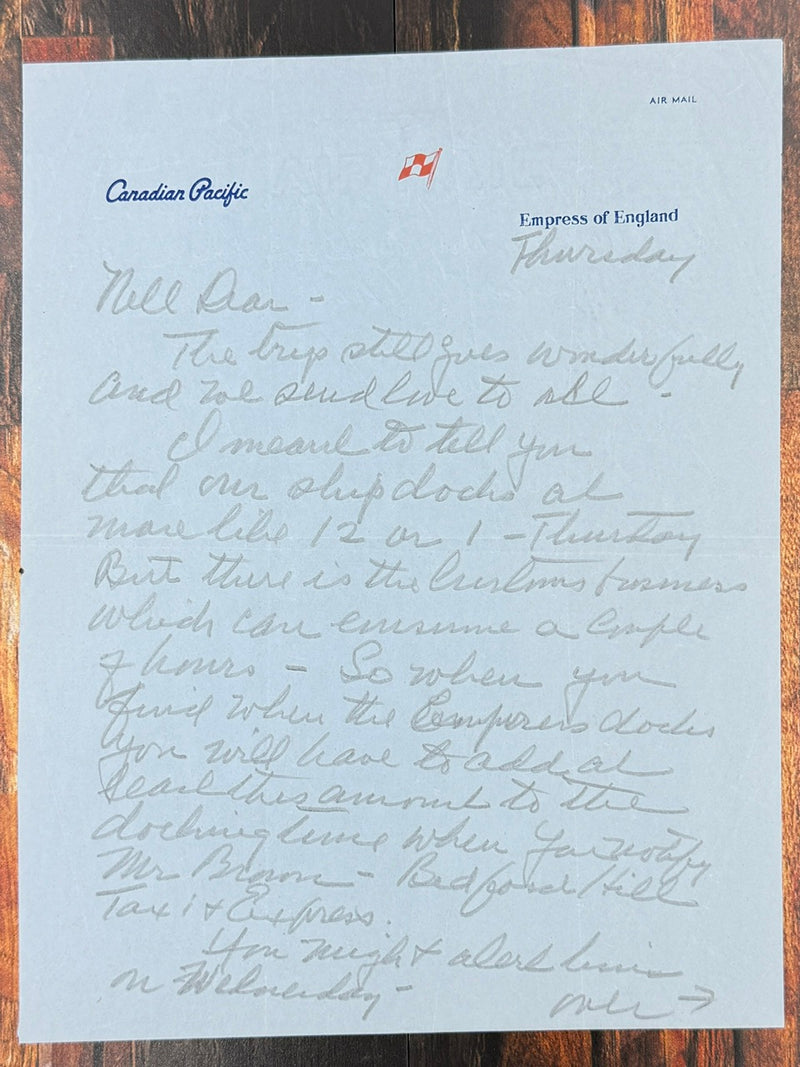 AIR MAIL
Canadian Pacific
Empress of England
Thursday
Nell Dear -
The trip still goes wonderfully
and we send love to all -
I meant to tell you
that our ship docks at
more like 12 or 1 - Thursday
But there is the Customs business
which can consume a couple
of hours - So when you
find when the Empress docks
you will have to add at
least this amount to the
docking time when you notify
Mr Brown - Bedford Hill
Taxi & Express.
You might alert him
on Wednesday -
over →